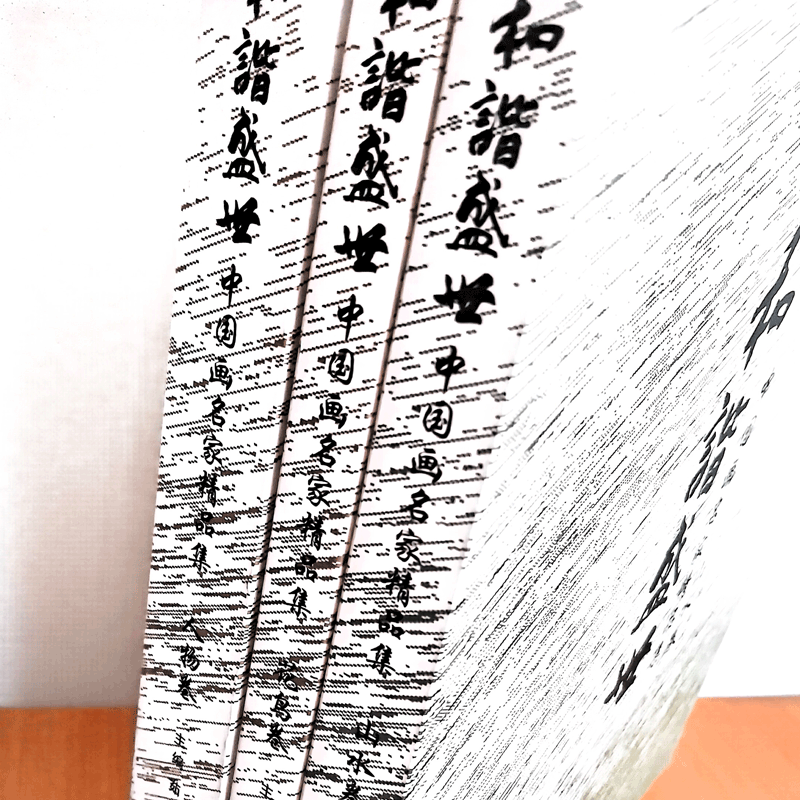 和諧盛世 中国画名家精品集 人物卷 主编
和諧盛世 中国画名家精品集 花鳥卷 主
和諧盛世 中国画名家精品集 山水卷
和諧盛世